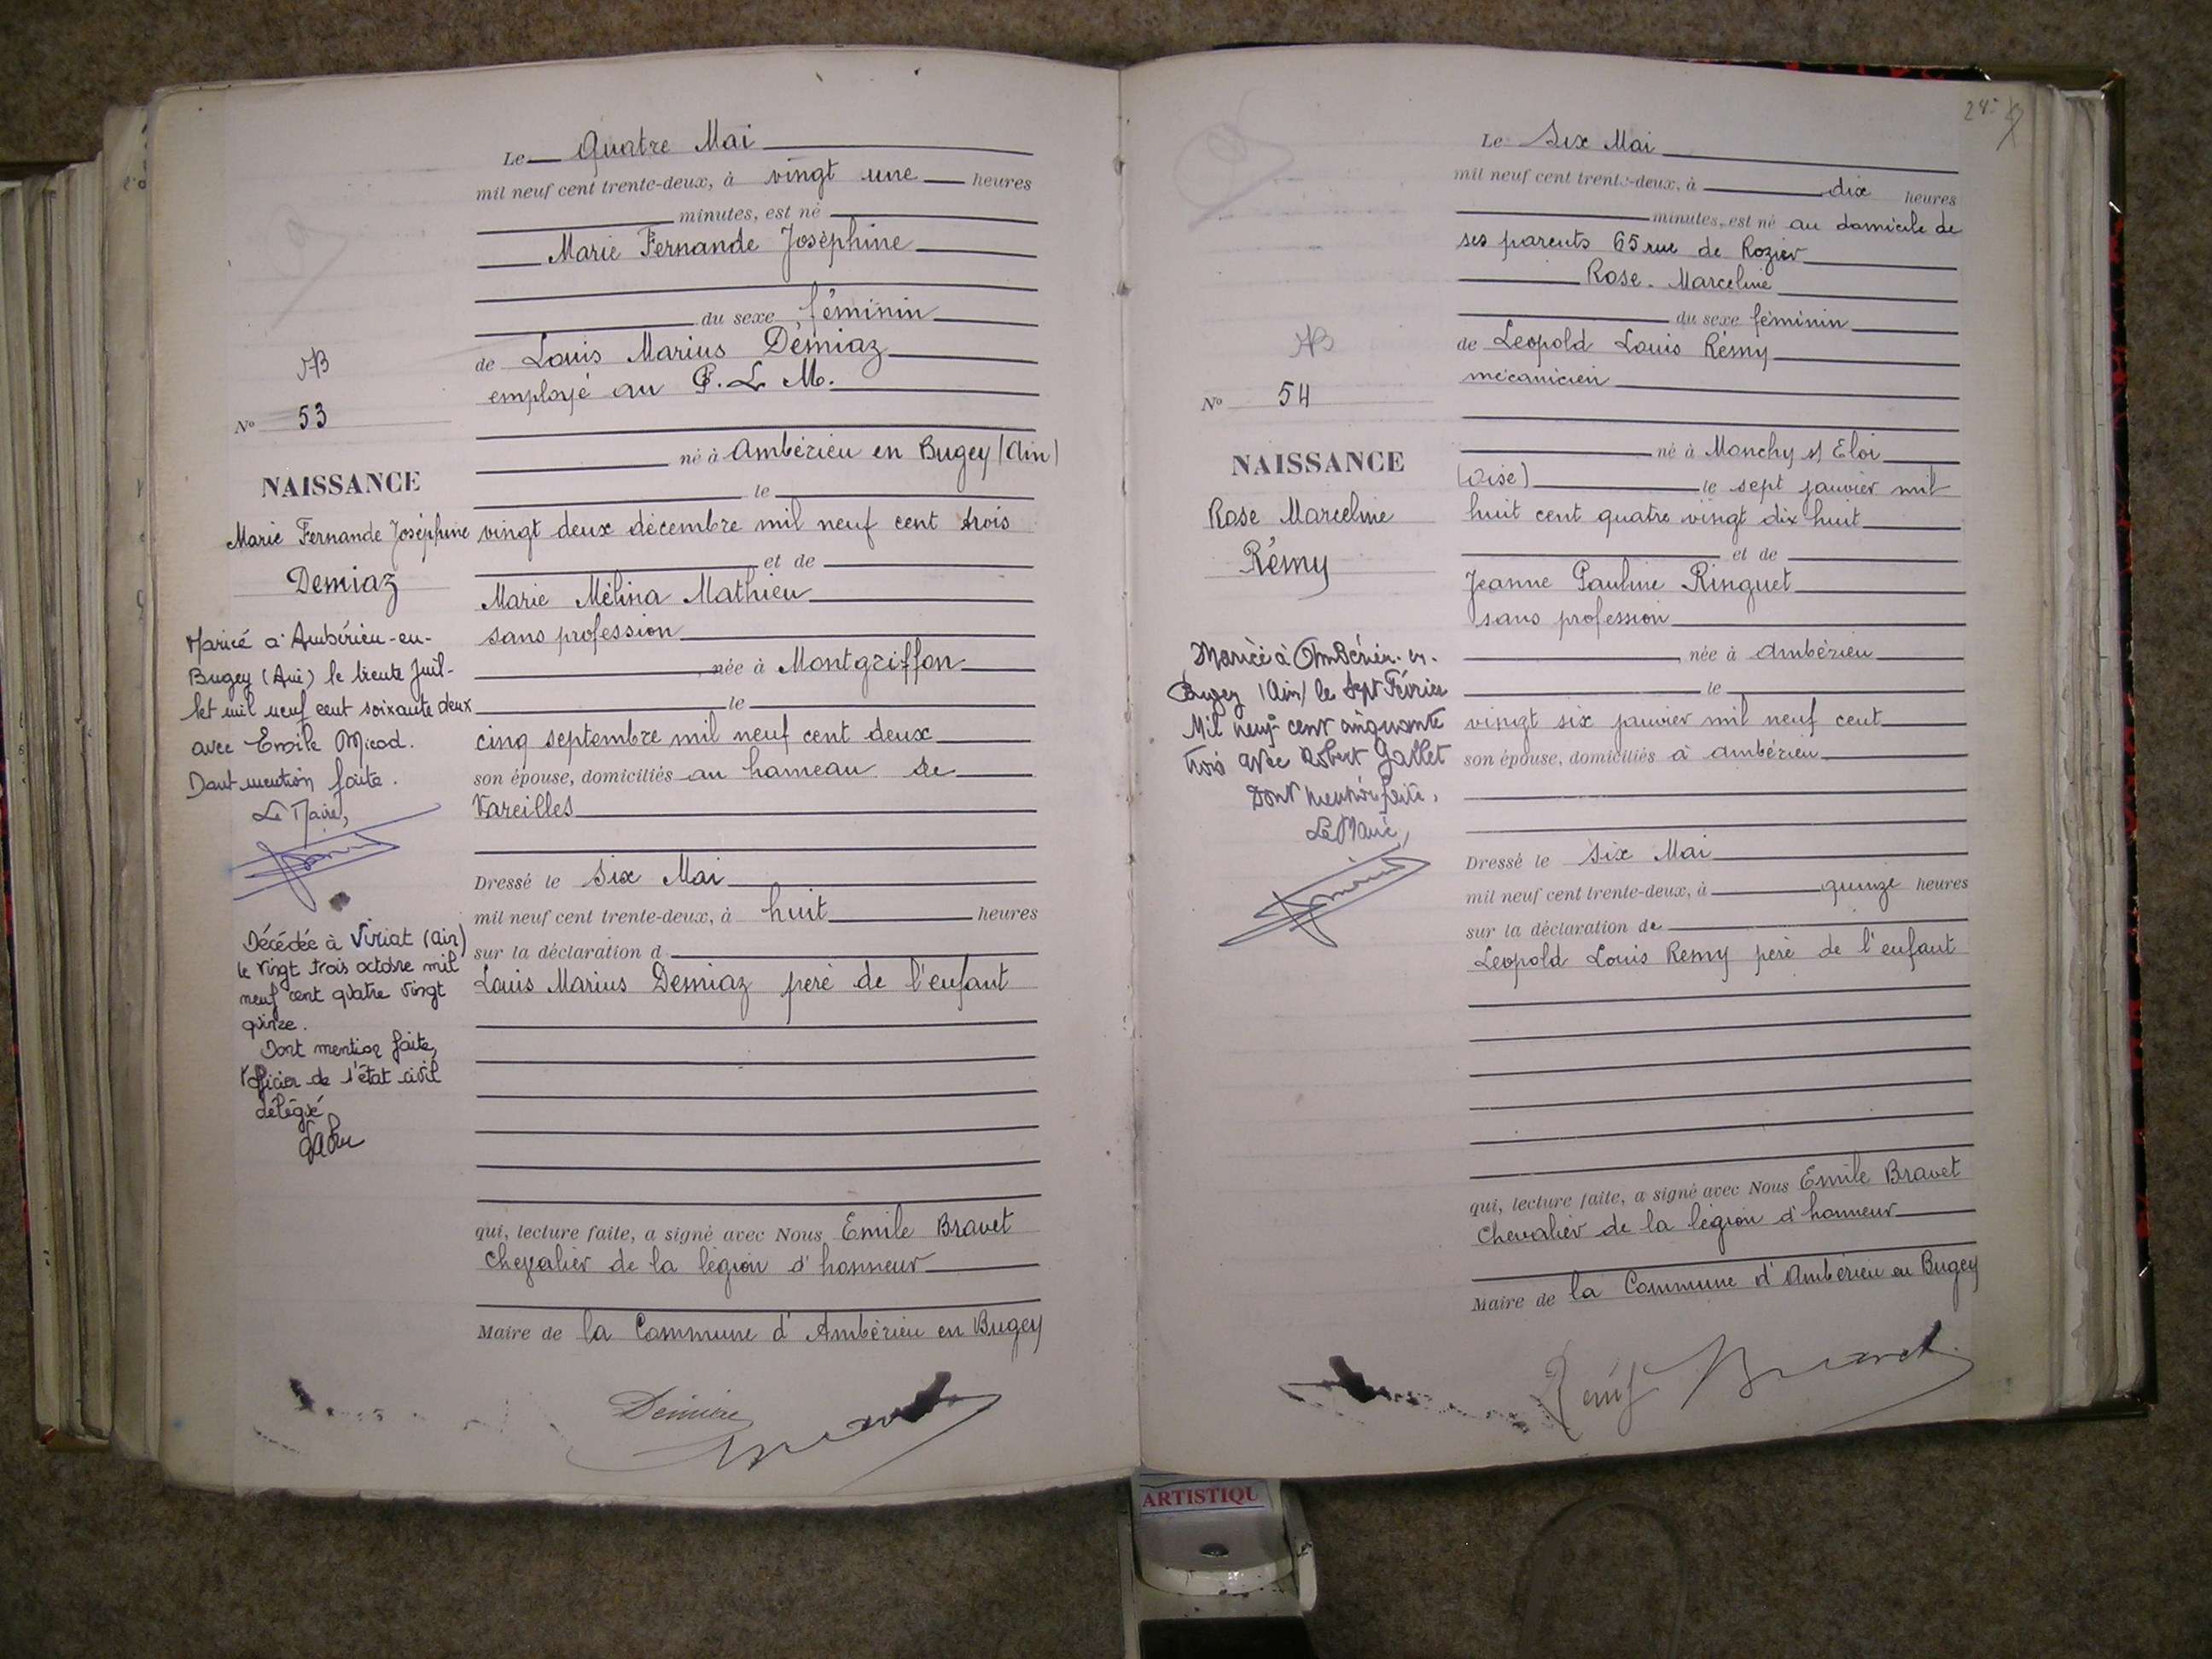 Le Quatre Mai
mil neuf cent trente-deux, à vingt une heures
minutes, est né
Marie Fernande Joséphine
du sexe féminin
de Louis Marius Démiaz
employé au P. L. M.
né à Ambérieu en Bugey (Ain)
le
vingt deux décembre mil neuf cent trois
et de
Marie Mélina Mathieu
sans profession
née à Montgriffon
le
cinq septembre mil neuf cent deux
son épouse, domiciliés au hameau de
Vareilles
Dressé le Six Mai
mil neuf cent trente-deux, à huit heures
sur la déclaration d
Louis Marius Demiaz père de l'enfant
qui, lecture faite, a signé avec Nous Emile Bravet
Chevalier de la légion d'honneur
Maire de la Commune d'Ambérieu en Bugey
N° 53
NAISSANCE
Marie Fernande Joséphine
Demiaz
Mariée à Ambérieu-en-
Bugey (Ain) le trente Juil-
let mil neuf cent soixante deux
avec Emile Micod.
Dont mention faite.
Le Maire,
Décédée à Viriat (Ain)
le vingt trois octobre mil
neuf cent quatre vingt
quinze.
Dont mention faite,
l'officier de l'état civil
délégué
Le Six Mai
mil neuf cent trente-deux, à dix heures
minutes, est né au domicile de
ses parents 65 rue de Rozier
Rose. Marceline
du sexe féminin
de Leopold Louis Rémy
mécanicien
né à Monchy st Eloi
(Oise) le sept janvier mil
huit cent quatre vingt dix huit
et de
Jeanne Pauline Ringuet
sans profession
née à Ambérieu
le
vingt six janvier mil neuf cent
son épouse, domiciliés à Ambérieu
Dressé le Six Mai
mil neuf cent trente-deux, à quinze heures
sur la déclaration de
Leopold Louis Remy père de l'enfant
qui, lecture faite, a signé avec Nous Emile Bravet
Chevalier de la légion d'honneur
Maire de la Commune d'Ambérieu en Bugey
Remy Bravet
N° 54
NAISSANCE
Rose Marceline
Rémy
Mariée à Ambérieu-en-
Bugey (Ain) le Sept Février
Mil neuf cent cinquante
trois avec Robert Gallet
Dont mention faite,
Le Maire,
ARTISTIQU